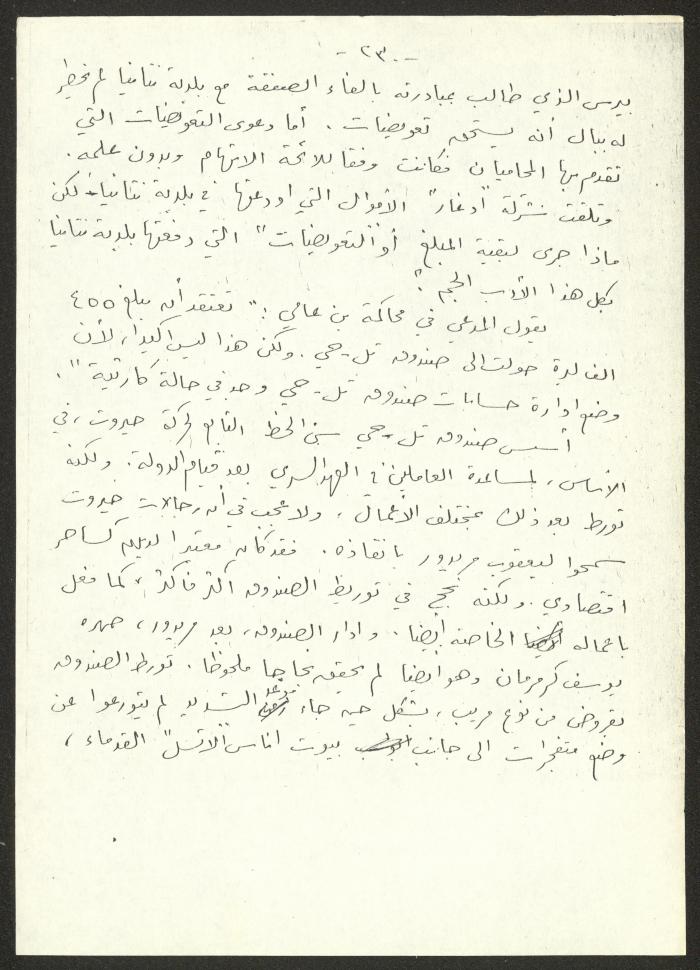 -٢٣٠-
بيرس الذي طالب بمبادرته بالغاء الصفقة مع بلدية نتانيا لم يخطر
له ببال أنه يستحق تعويضات . أما دعوى التعويضات التي
تقدم بها المحاميان فكانت وفقا للائحة الاتهام وبدون علمه .
وتلقت شركة "أدغار" الأموال التي اودعتها في بلدية نتانيا، لكن
ماذا جرى لبقية المبلغ أو "التعويضات" التي دفعتها بلدية نتانيا
بكل هذا الأدب الجم ؟
يقول المدعي في محاكمة بن عامي : " نعتقد أن مبلغ ٤٥٥
الف ليرة حولت الى صندوق تل-حي . ولكن هذا ليس اكيدا، لأن
وضع ادارة حسابات صندوق تل-حي وجد في حالة كارثية " .
أسس صندوق تل-حي سيئ الحظ التابع لحركة حيروت ، في
الأساس ، لمساعدة العاملين في العهد السري بعد قيام الدولة . ولكنه
تورط بعد ذلك بمختلف الأعمال ، ولا عجب في أن رجالات حيروت
سمحوا ليعقوب مريدور بانقاذه . فقد كان معتبرا لديهم كساحر
اقتصادي . ولكنه نجح في توريط الصندوق اكثر فأكثر ، كما فعل
باعماله الخاصة أيضا . وادار الصندوق ، بعد مريدور ، صهره
يوسف كرمرمان وهو ايضا لم يحقق نجاحا ملحوظا . تورط الصندوق
بقروض من نوع مريب ، بشكل حيه جاء الشديد لم يتورعوا عن
وضع متفجرات الى جانب بيوت اناس "الاتسل" القدماء ،